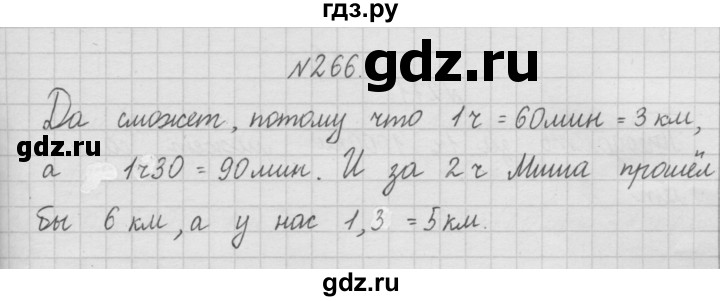 гдз.ру
№266.
gdz.ru
Да сможет, потому что 1ч = 60мин = 3 км,
gdz.ru
а 1ч30 = 90мин. И за 2ч Миша прошёл
бы 6 км, а у нас 1,3 = 5км.
gdz.ru